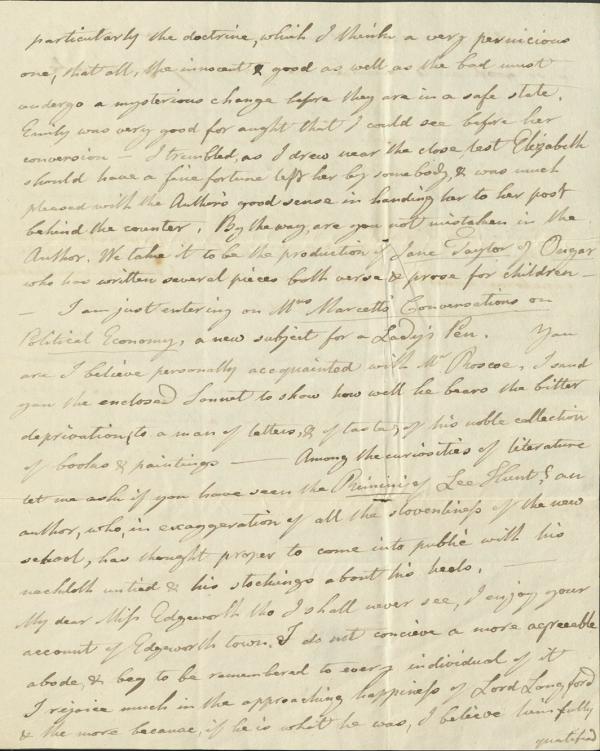 particularly the doctrine, which I think a very pernicious
one, that all, the innocent & good as well as the bad must
undergo a mysterious change before they are in a safe state.
Emily was very good for aught that I could see before her
conversion — I trembled, as I drew near the close, lest Elizabeth
should have a fine fortune left her by somebody, & was much
pleased with the Author's good sense in handing her to her post
behind the counter. By the way, are you not mistaken in the
Author. We take it to be the production of Jane Taylor of Ongar
who has written several pieces both verse & prose for children —
— I am just entering on Mrs Marcett's Conversations on
Political Economy, a new subject for a Lady's Pen. You
are I believe personally accquainted with Mr Roscoe, I send
you the enclosed Sonnet to show how well he bears the bitter
deprivation, to a man of letters, & of taste, of his noble collection
of books & paintings — Among the curiosities of literature
let me ask if you have seen the Rimini of Lee Hunt, an
author, who, in exaggeration of all the slovenliness of the new
school, has thought proper to come into public with his
neckcloth untied & his stockings about his heels. —
My dear Miss Edgeworth tho I shall never see, I enjoy your
account of Edgeworth town. I do not concieve a more agreeable
abode, & beg to be remembered to every individual of it
I rejoice much in the approaching happiness of Lord Longford
& the more because, if he is what he was, I believe him fully
qualified